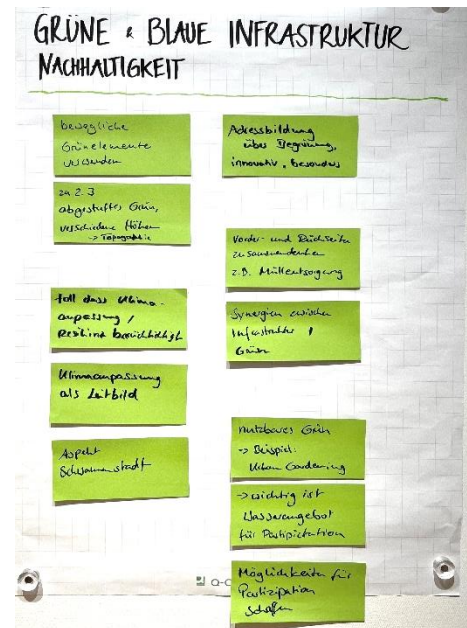 GRÜNE & BLAUE INFRASTRUKTUR
NACHHALTIGKEIT
bewegliche
Grünelemente
verwenden
zu 2.3
abgestuftes Grün,
verschiedene Höhen
-> Topographie
toll dass Klima-
anpassung /
Resilienz berücksichtigt
Klimaanpassung
als Leitbild
Aspekt
Schwammstadt
Adressbildung
über Begrünung,
innovativ, besonders
Vorder- und Rückseite
zusammendenken
z.B. Müllentsorgung
Synergien zwischen
Infrastruktur /
Grün
nutzbares Grün
-> Beispiel:
Urban Gardening
-> wichtig ist
Wasserangebot
für Partizipation
Möglichkeiten für
Partizipation
schaffen